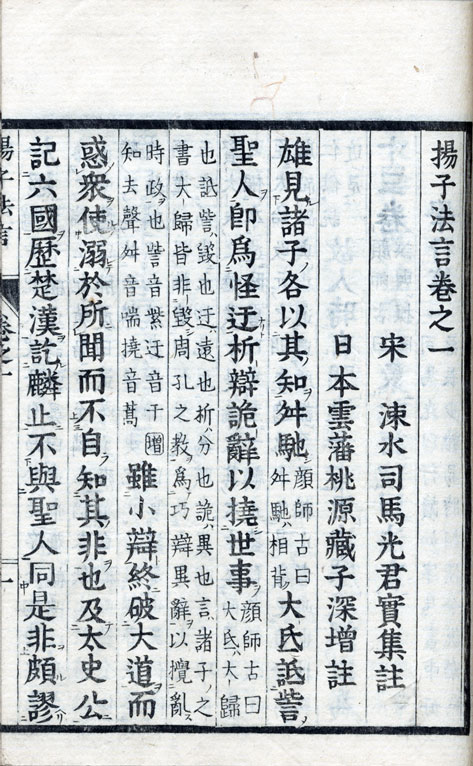 揚子法言卷之一
宋 涑水司馬光君實集註
日本雲藩桃源藏子深增註
雄見諸子各以其知舛馳顔師古曰舛馳相背大氐詆訾
聖人卽爲怪迂析辯詭辭以撓世事顔師古曰大氐大歸
也詆訾毀也迂遠也析分也詭異也言諸子之
書大歸皆非毀周孔之教爲巧辯異辭以攪亂
時政也訾音紫迂音于
知去聲舛音喘撓音蒿 增 雖小辯終破大道而
惑衆使溺於所聞而不自知其非也及太史公
記六國歷楚漢訖麟止不與聖人同是非頗謬
揚子法言 卷之一 一